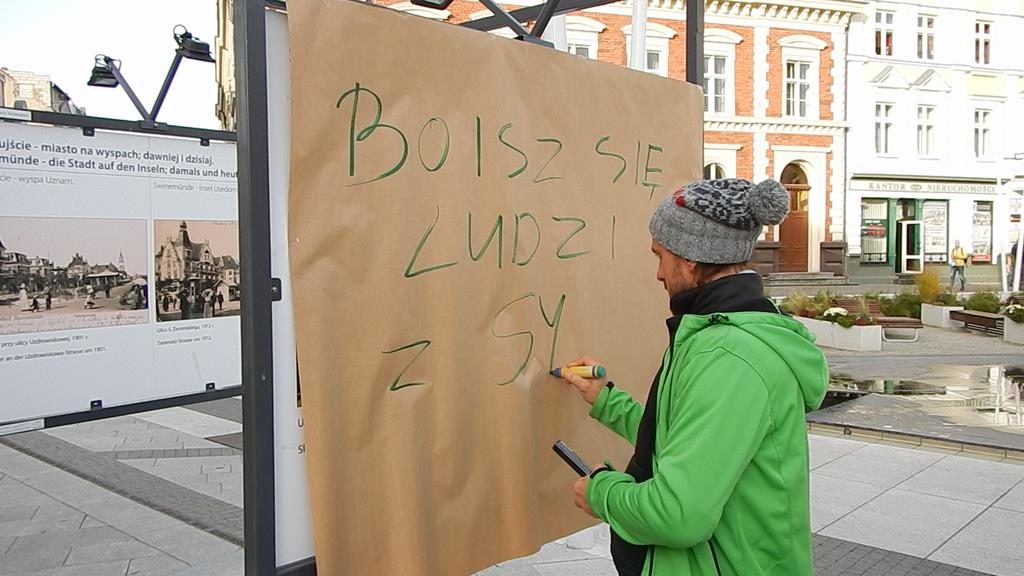 ujście - miasto na wyspach; dawniej i dzisiaj.
münde - die Stadt auf den Inseln; damals und heut
cie - wyspa Uznam.
Swinemünde - Insel Usedom
przy ulicy Uzdrowiskowej, 1901 r.
an der Uzdrowiskowe-Strasse um 1901.
Ulica S. Żeromskiego, 1912 r.
Żeromski-Strasse um 1912.
BOISZ SIĘ
LUDZI
Z SY
KANTOR NIERUCHOMOŚCI